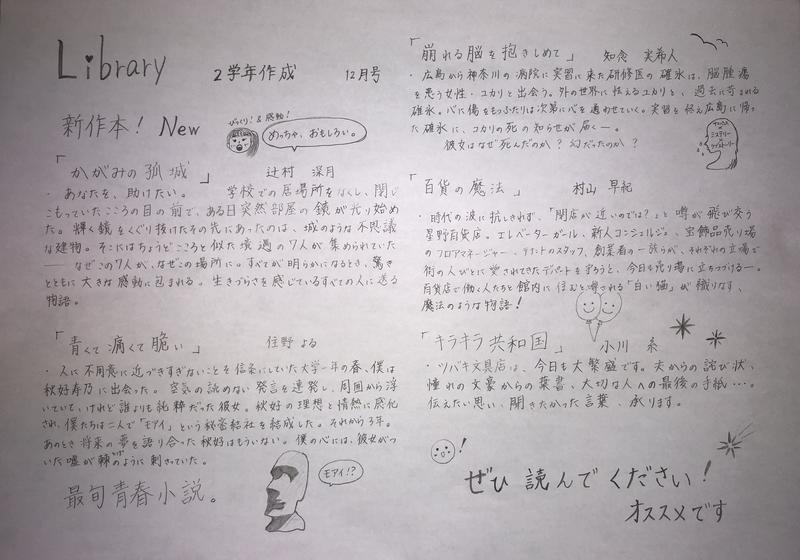 Library
2学年作成 12月号
新作本! New
びっくり!&感動!
めっちゃ、おもしろい。
「かがみの孤城」 辻村 深月
・あなたを、助けたい。 学校での居場所をなくし、閉じ
こもっていたこころの目の前で、ある日突然部屋の鏡が光り始め
た。輝く鏡をくぐり抜けたその先にあったのは、城のような不思議
な建物。そこにはちょうどこころと似た境遇の7人が集められていた
── なぜこの7人が、なぜこの場所に。すべてが明らかになるとき、驚き
とともに大きな感動に包まれる。生きづらさを感じているすべての人に送る
物語。
「青くて痛くて脆い」 住野 よる
・人に不用意に近づきすぎないことを信条にしていた大学一年の春、僕は
秋好寿乃に出会った。空気の読めない発言を連発し、周囲から浮
いていて、けれど誰よりも純粋だった彼女。秋好の理想と情熱に感化
され、僕たちは二人で「モアイ」という秘密結社を結成した。それから3年。
あのとき将来の夢を語り合った秋好はもういない。僕の心には、彼女がつ
いた嘘が棘のように刺さっていた。
最旬青春小説。
モアイ!?
「崩れる脳を抱きしめて」 知念 実希人
・広島から神奈川の病院に実習に来た研修医の碓氷は、脳腫瘍
を患う女性・ユカリと出会う。外の世界に怯えるユカリと、過去に苛まれる
碓氷。心に傷をもつふたりは次第に心を通わせていく。実習を終え広島に帰っ
た碓氷に、ユカリの死の知らせが届く―。
彼女はなぜ死んだのか?幻だったのか?
ミステリー
「百貨の魔法」 村山 早紀
・時代の波に抗しきれず、「閉店が近いのでは?」と噂が飛び交う
星野百貨店。エレベーターガール、新人コンシェルジュ、宝飾品売り場
のフロアマネージャー、テナントのスタッフ、創業者の一族らが、それぞれの立場で
街の人びとに愛されてきたデパートを守ろうと、今日も売り場に立ちつづける―。
百貨店で働く人たちと館内に住むと噂される「白い猫」が織りなす、
魔法のような物語!
「キラキラ共和国」 小川 糸
・ツバキ文具店は、今日も大繁盛です。夫からの詫び状、
憧れの文豪からの葉書、大切な人への最後の手紙…。
伝えたい思い、聞きたかった言葉、承ります。
!
ぜひ読んでください!
オススメです